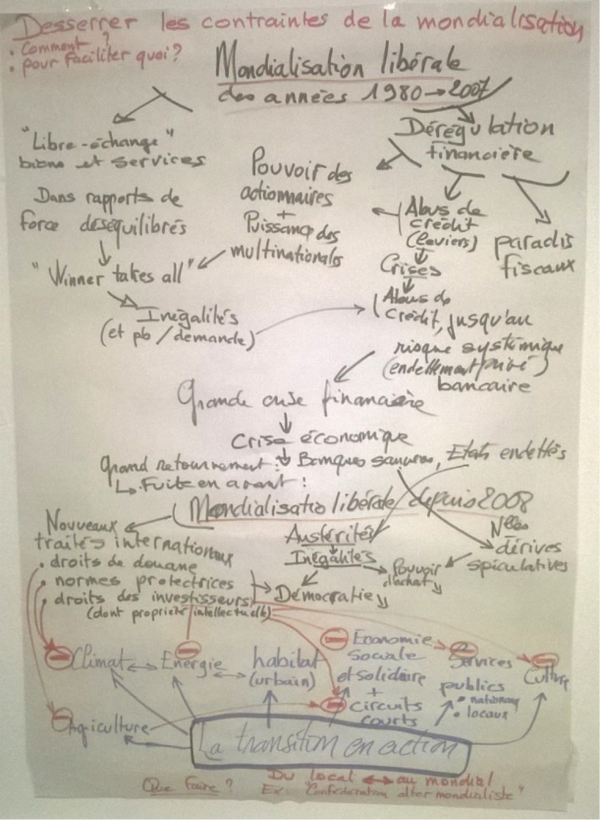 Desserrer les contraintes de la mondialisation
• Comment ?
• pour faciliter quoi ?
Mondialisation libérale
des années 1980 → 2007
"Libre-échange"
biens et services
Dans rapports de
force déséquilibrés
"Winner takes all"
Inégalités
(et pb / demande)
Pouvoir des
actionnaires
+
Puissance des
multinationales
Dérégulation
financière
Abus de
crédit
(leviers)
Crises
Abus de
crédit, jusqu'au
risque systémique
(endettement privé)
bancaire
paradis
fiscaux
Grande crise financière
Crise économique
Grand retournement : Banques sauvées, Etats endettés
↳ Fuite en avant !
Mondialisatio libérale depuis 2008
Nouveaux
traités internationaux
• droits de douane
• normes protectrices
• droits des investisseurs
(dont propriété intellectuelle)
Austérité
Inégalités
Démocratie ↘
Pouvoir
d'achat ↘
Nlles
dérives
spéculatives
Climat ↔ Energie ↔ habitat
(urbain)
Economie
sociale
et solidaire
+
circuits
courts
Services
publics
• nationaux
• locaux
Culture
Agriculture
La transition en action
Que faire ?
Du local ↔ au mondial
Ex: "Confédération altermondialiste"